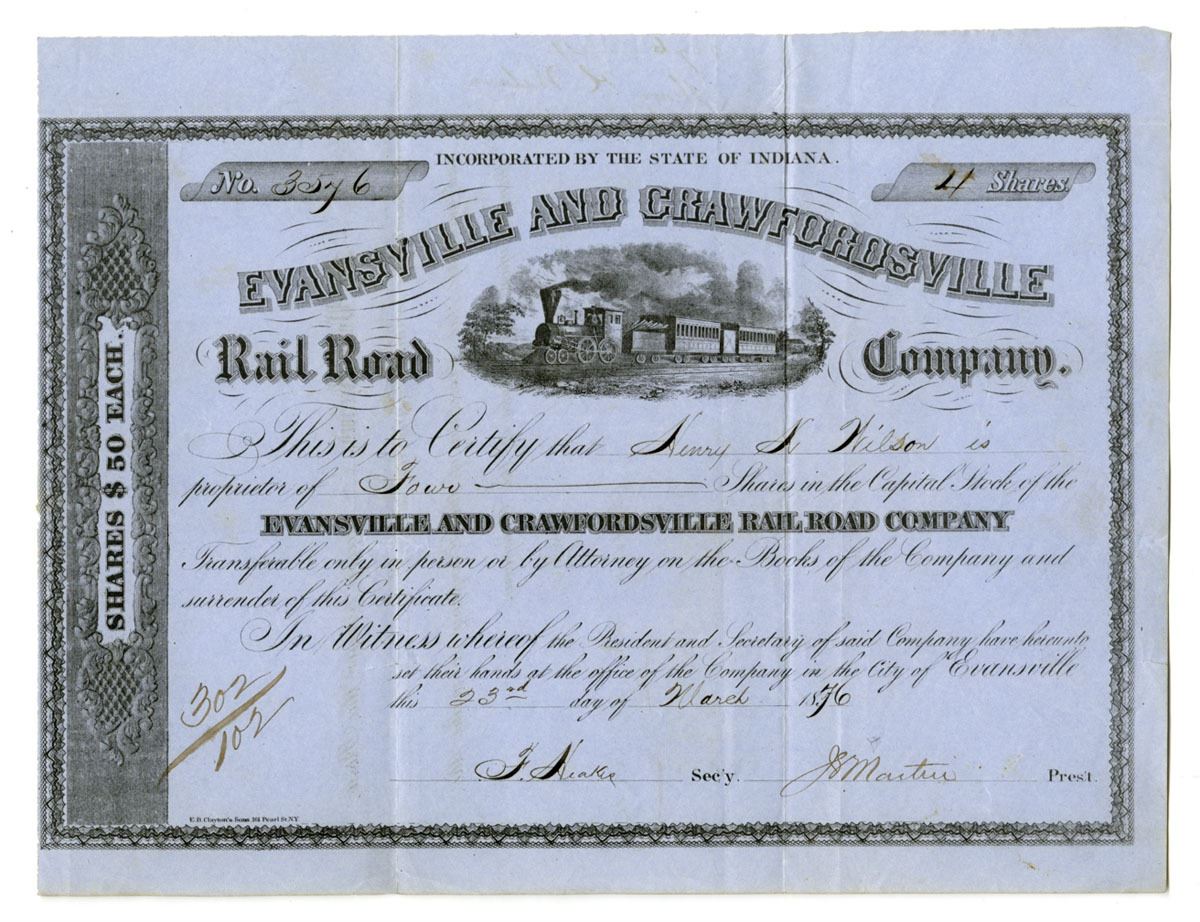 INCORPORATED BY THE STATE OF INDIANA.
No. 3576
4 Shares.
EVANSVILLE AND CRAWFORDSVILLE
Rail Road Company.
SHARES $ 50 EACH.
This is to Certify that Henry Wilson is
proprietor of Four Shares in the Capital Stock of the
EVANSVILLE AND CRAWFORDSVILLE RAIL ROAD COMPANY
Transferable only in person or by Attorney on the Books of the Company and
surrender of this Certificate.
In Witness whereof the President and Secretary of said Company have hereunto
set their hands at the office of the Company in the City of Evansville
this 23rd day of March 1876
302/102
Sec'y. J Martin Pres't.
E.B. Clayton's Sons 161 Pearl St. N.Y.